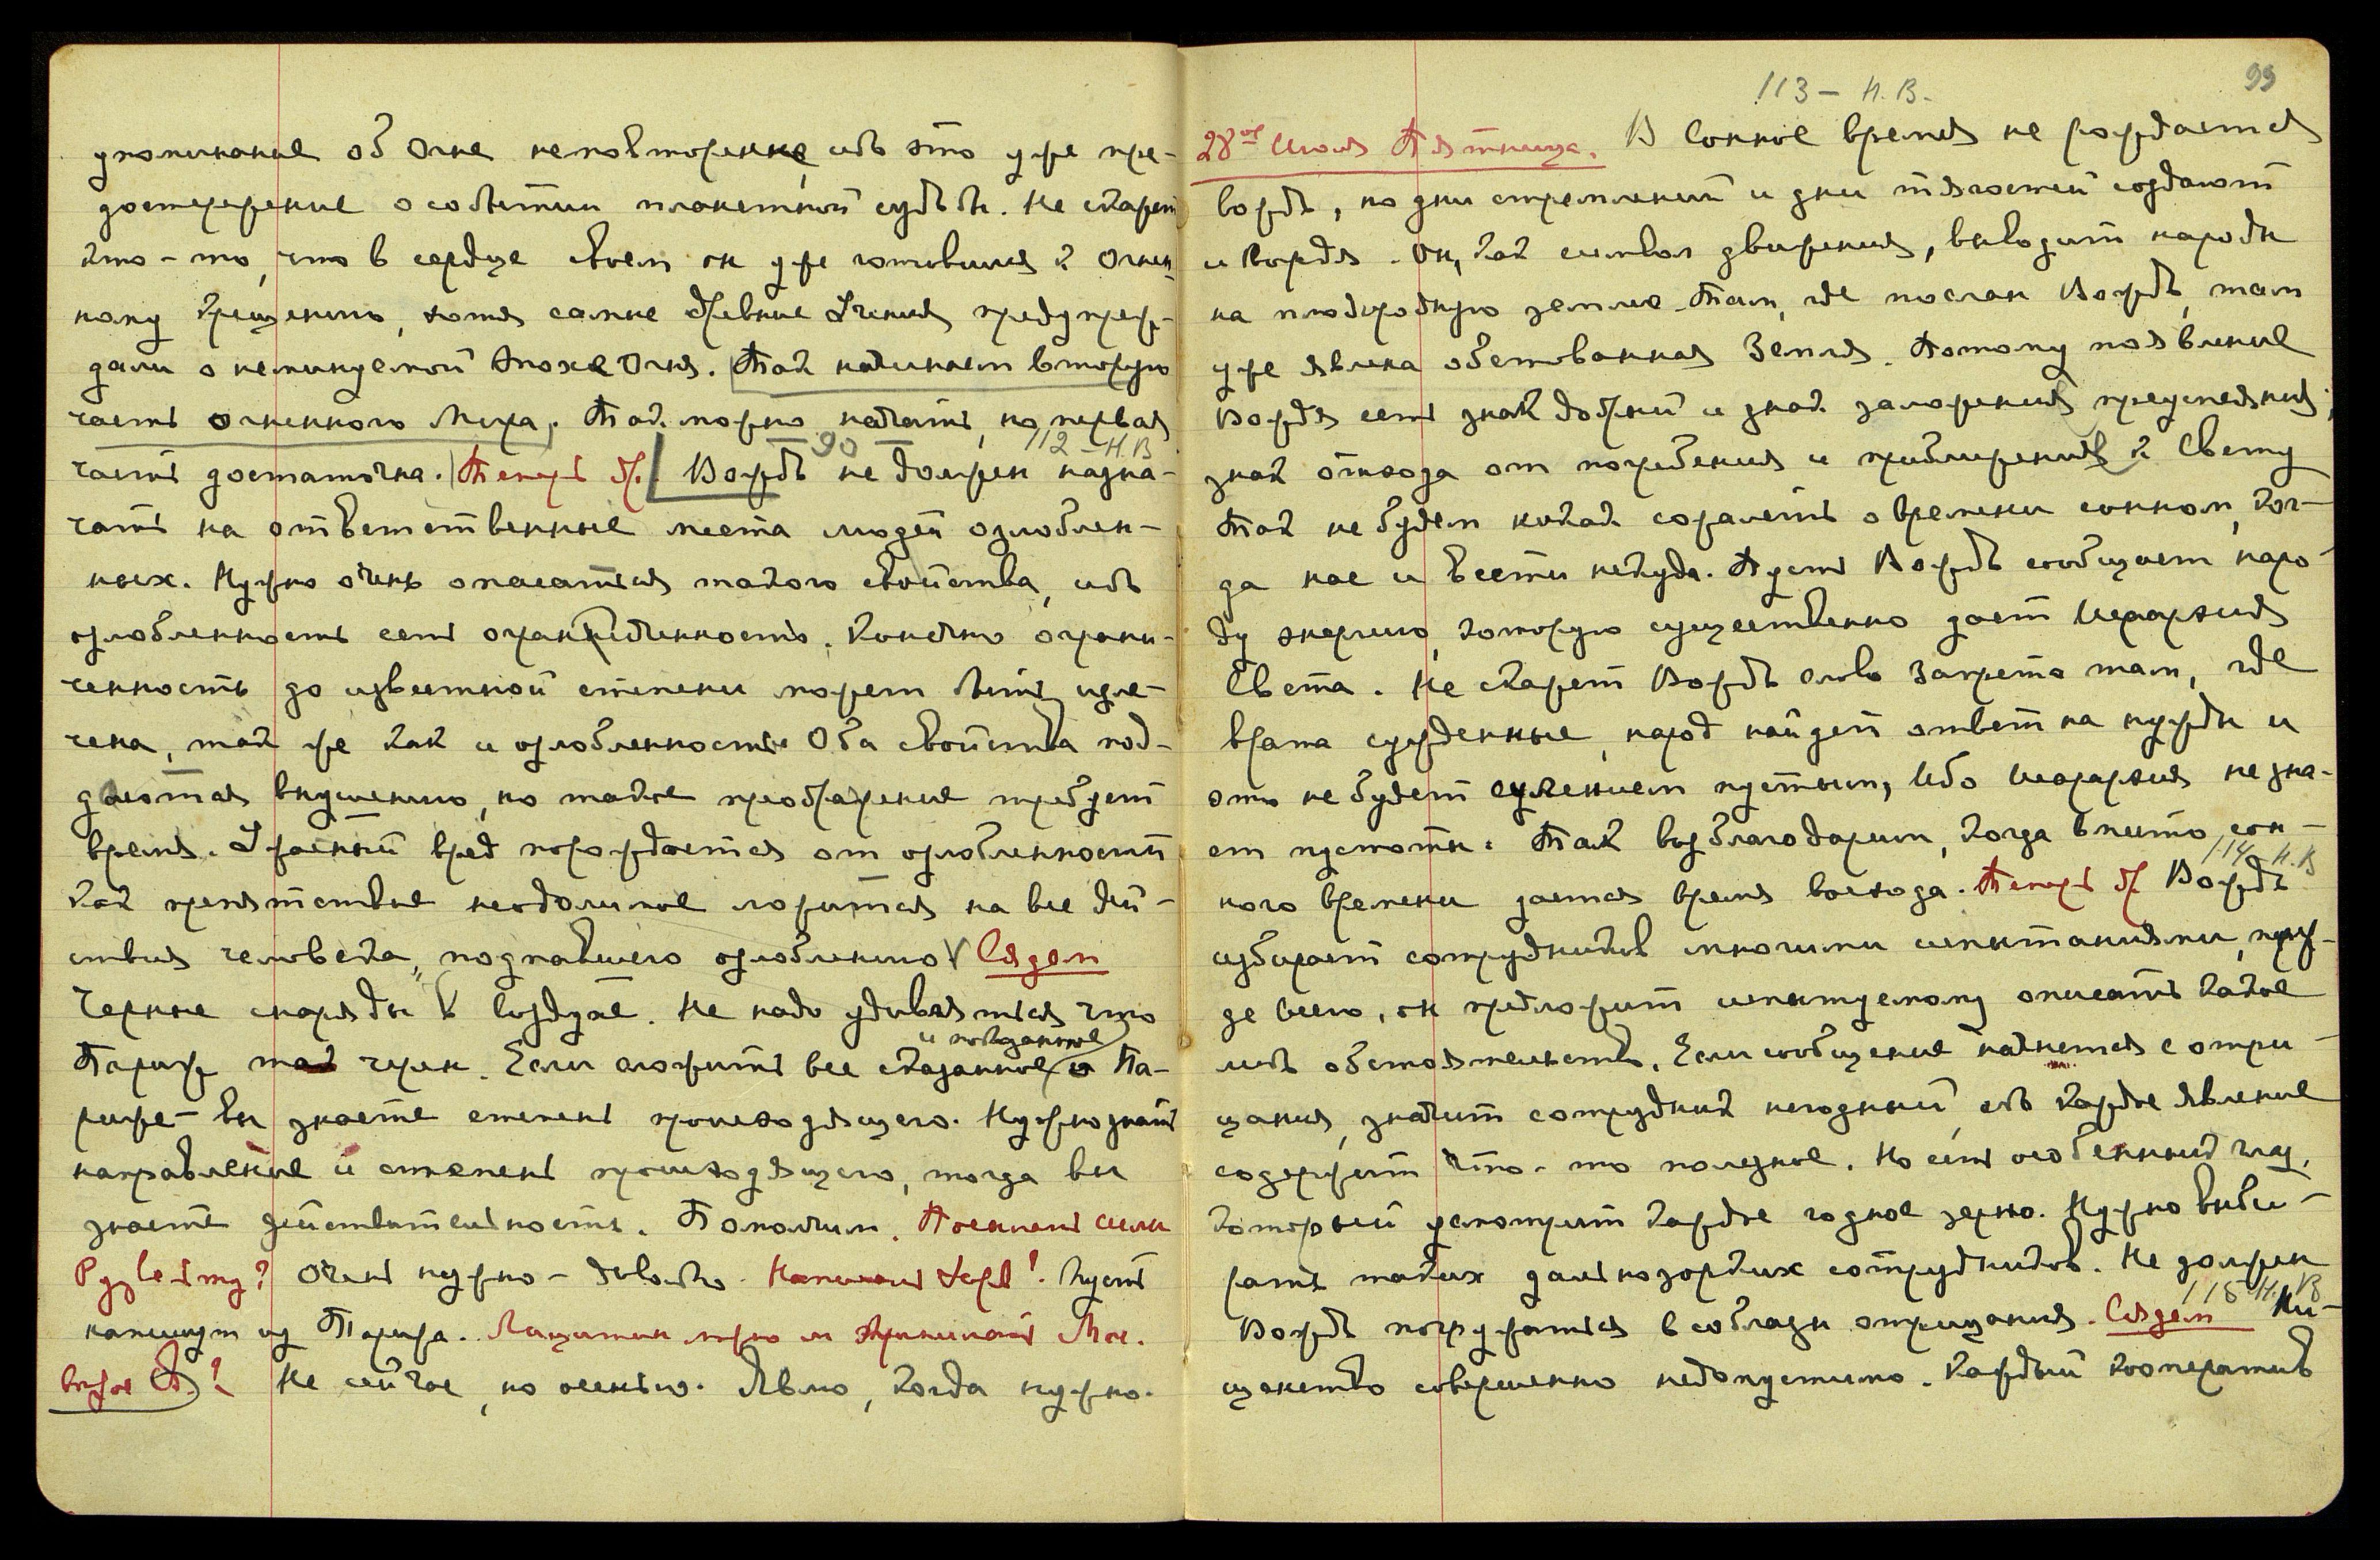 упоминание об Огне неповторенно, ибо это уже пре-
достережение о событии планетной судьбы. Не скажет
кто-то, что в сердце своем он уже готовился к Огнен-
ному Крещению, хотя самые древние Учения предупреж-
дали о неминуемой Эпохе Огня. Так начинаем вторую
часть Огненного Мира. Так можно начать, но первая
90 112 – Н.В
часть достаточна. Теперь др. Вождь не должен назна-
чать на ответственные места людей озлоблен-
ных. Нужно очень опасаться такого свойства, ибо
озлобленность есть ограниченность. Конечно ограни-
ченность до известной степени может быть изле-
чена, так же как и озлобленность. Оба свойства под-
даются внушению, но такое преображение требует
время. Ужасный вред порождается от озлобленности
как препятствие неодолимое ложится на все дей-
ствия человека, подпавшего озлоблению V Сядем
Черные снаряды в воздухе. Не надо удивляться что
и показанное
Париж так черен. Если сложить все сказанное о Па-
риже – вы знаете степень происходящего. Нужно знать
направление и степень происходящего, тогда вы
знаете действительность. Помолчим. Посылать силы
Рузвельту? Очень нужно –
напишут из Парижа.
Не сейчас, но осенью. Явлю, когда нужно.
99
113 – Н.В.
28ое Июля Пятница. В сонное время не рождается
вождь, но дни стремлений и дни тягостей создают
и Вождя. Он, как символ движения, выводит народы
на плодородную землю. Там, где послан Вождь, там
уже явлена обетованная Земля. Потому появление
Вождя есть знак добрый и знак заложения преуспеяния;
знак отхода от погребения и приближения к Свету
Так не будем никак сожалеть о времени сонном, ког-
да нас и вести некуда. Пусть Вождь сообщает наро-
ду энергию, которую существенно дает Иерархия
Света. Не скажет Вождь слово Запрета там, где
врата сужденные, народ найдет ответ на нужды и
это не будет сулением пустым, ибо Иерархия не зна-
ет пустоты. Так возблагодарим, когда вместо сон-
114 – Н.В
ного времени дается время восхода. Теперь др Вождь
избирает сотрудников многими испытаниями, преж-
де всего, он предложит испытуемому описать какое
либо обстоятельство. Если сообщение начнется с отри-
цания, значит сотрудник негодный, ибо каждое явление
содержит что-то полезное. Но есть особенный глаз,
который усмотрит каждое годное зерно. Нужно выби-
рать таких дальнозорких сотрудников. Не должен
115 Н.В
Вождь погружаться в соблазн отрицания. Сядем Ни-
щенство совершенно недопустимо. Каждый кооператив